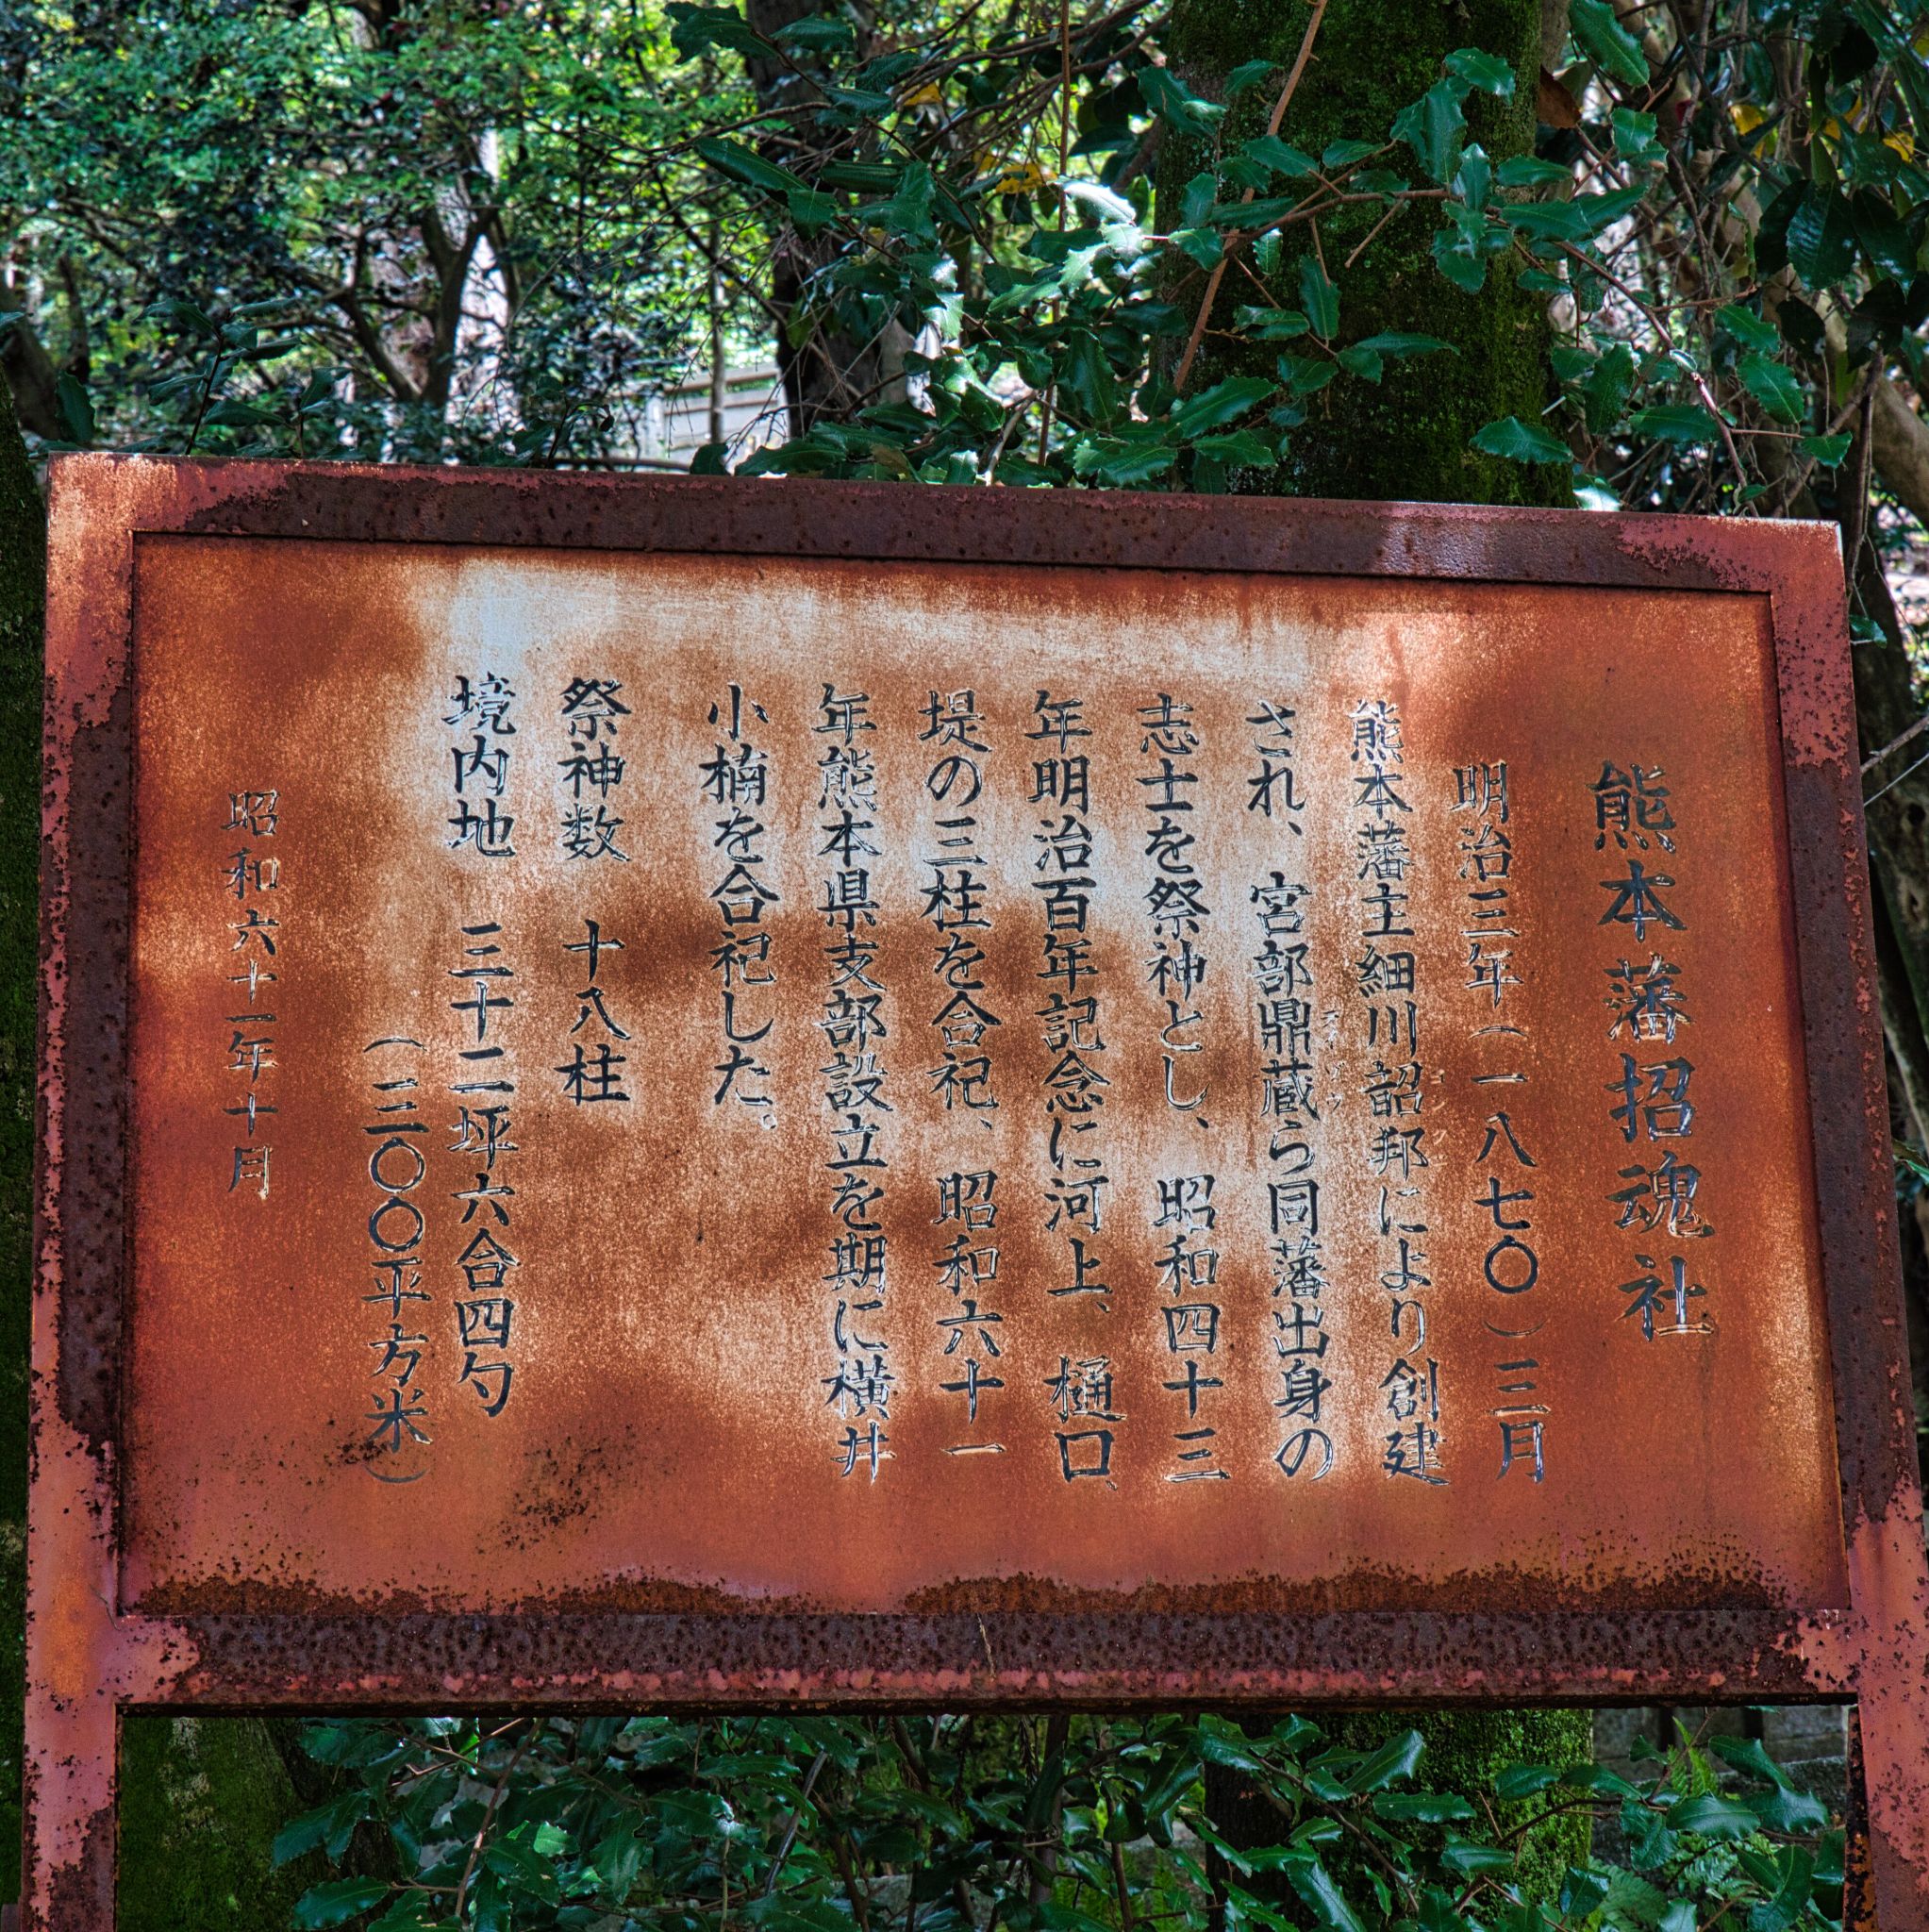 熊本藩招魂社
明治三年（一八七〇）三月
熊本藩主細川韶邦により創建
され、宮部鼎蔵ら同藩出身の
志士を祭神とし、昭和四十三
年明治百年記念に河上、樋口、
堤の三柱を合祀、昭和六十一
年熊本県支部設立を期に横井
小楠を合祀した。
祭神数　十八柱
境内地　三十二坪六合四勺
（二三〇〇平方米）
昭和六十一年十月